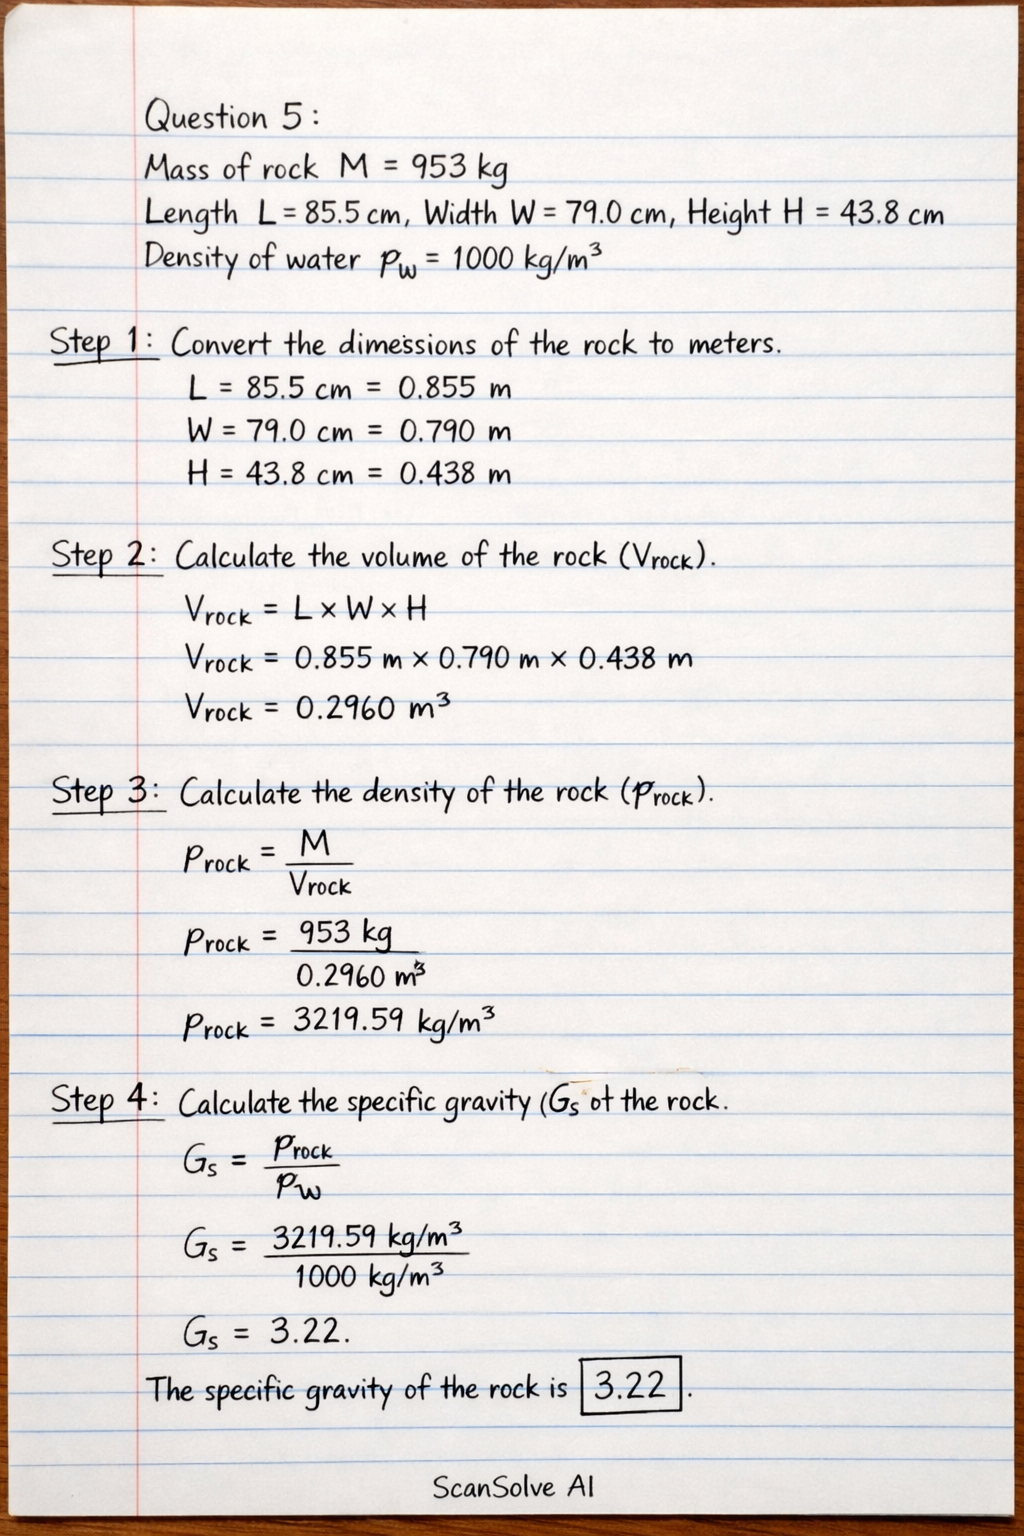 Question 5:
Mass of rock M = 953 kg
Length L = 85.5 cm, Width W = 79.0 cm, Height H = 43.8 cm
Density of water ρw = 1000 kg/m³
Step 1: Convert the dimessions of the rock to meters.
L = 85.5 cm = 0.855 m
W = 79.0 cm = 0.790 m
H = 43.8 cm = 0.438 m
Step 2: Calculate the volume of the rock (Vrock).
Vrock = L × W × H
Vrock = 0.855 m × 0.790 m × 0.438 m
Vrock = 0.2960 m³
Step 3: Calculate the density of the rock (ρrock).
ρrock = M
Vrock
ρrock = 953 kg
0.2960 m³
ρrock = 3219.59 kg/m³
Step 4: Calculate the specific gravity (Gs ot the rock.
Gs = ρrock
ρw
Gs = 3219.59 kg/m³
1000 kg/m³
Gs = 3.22.
The specific gravity of the rock is 3.22.
ScanSolve AI